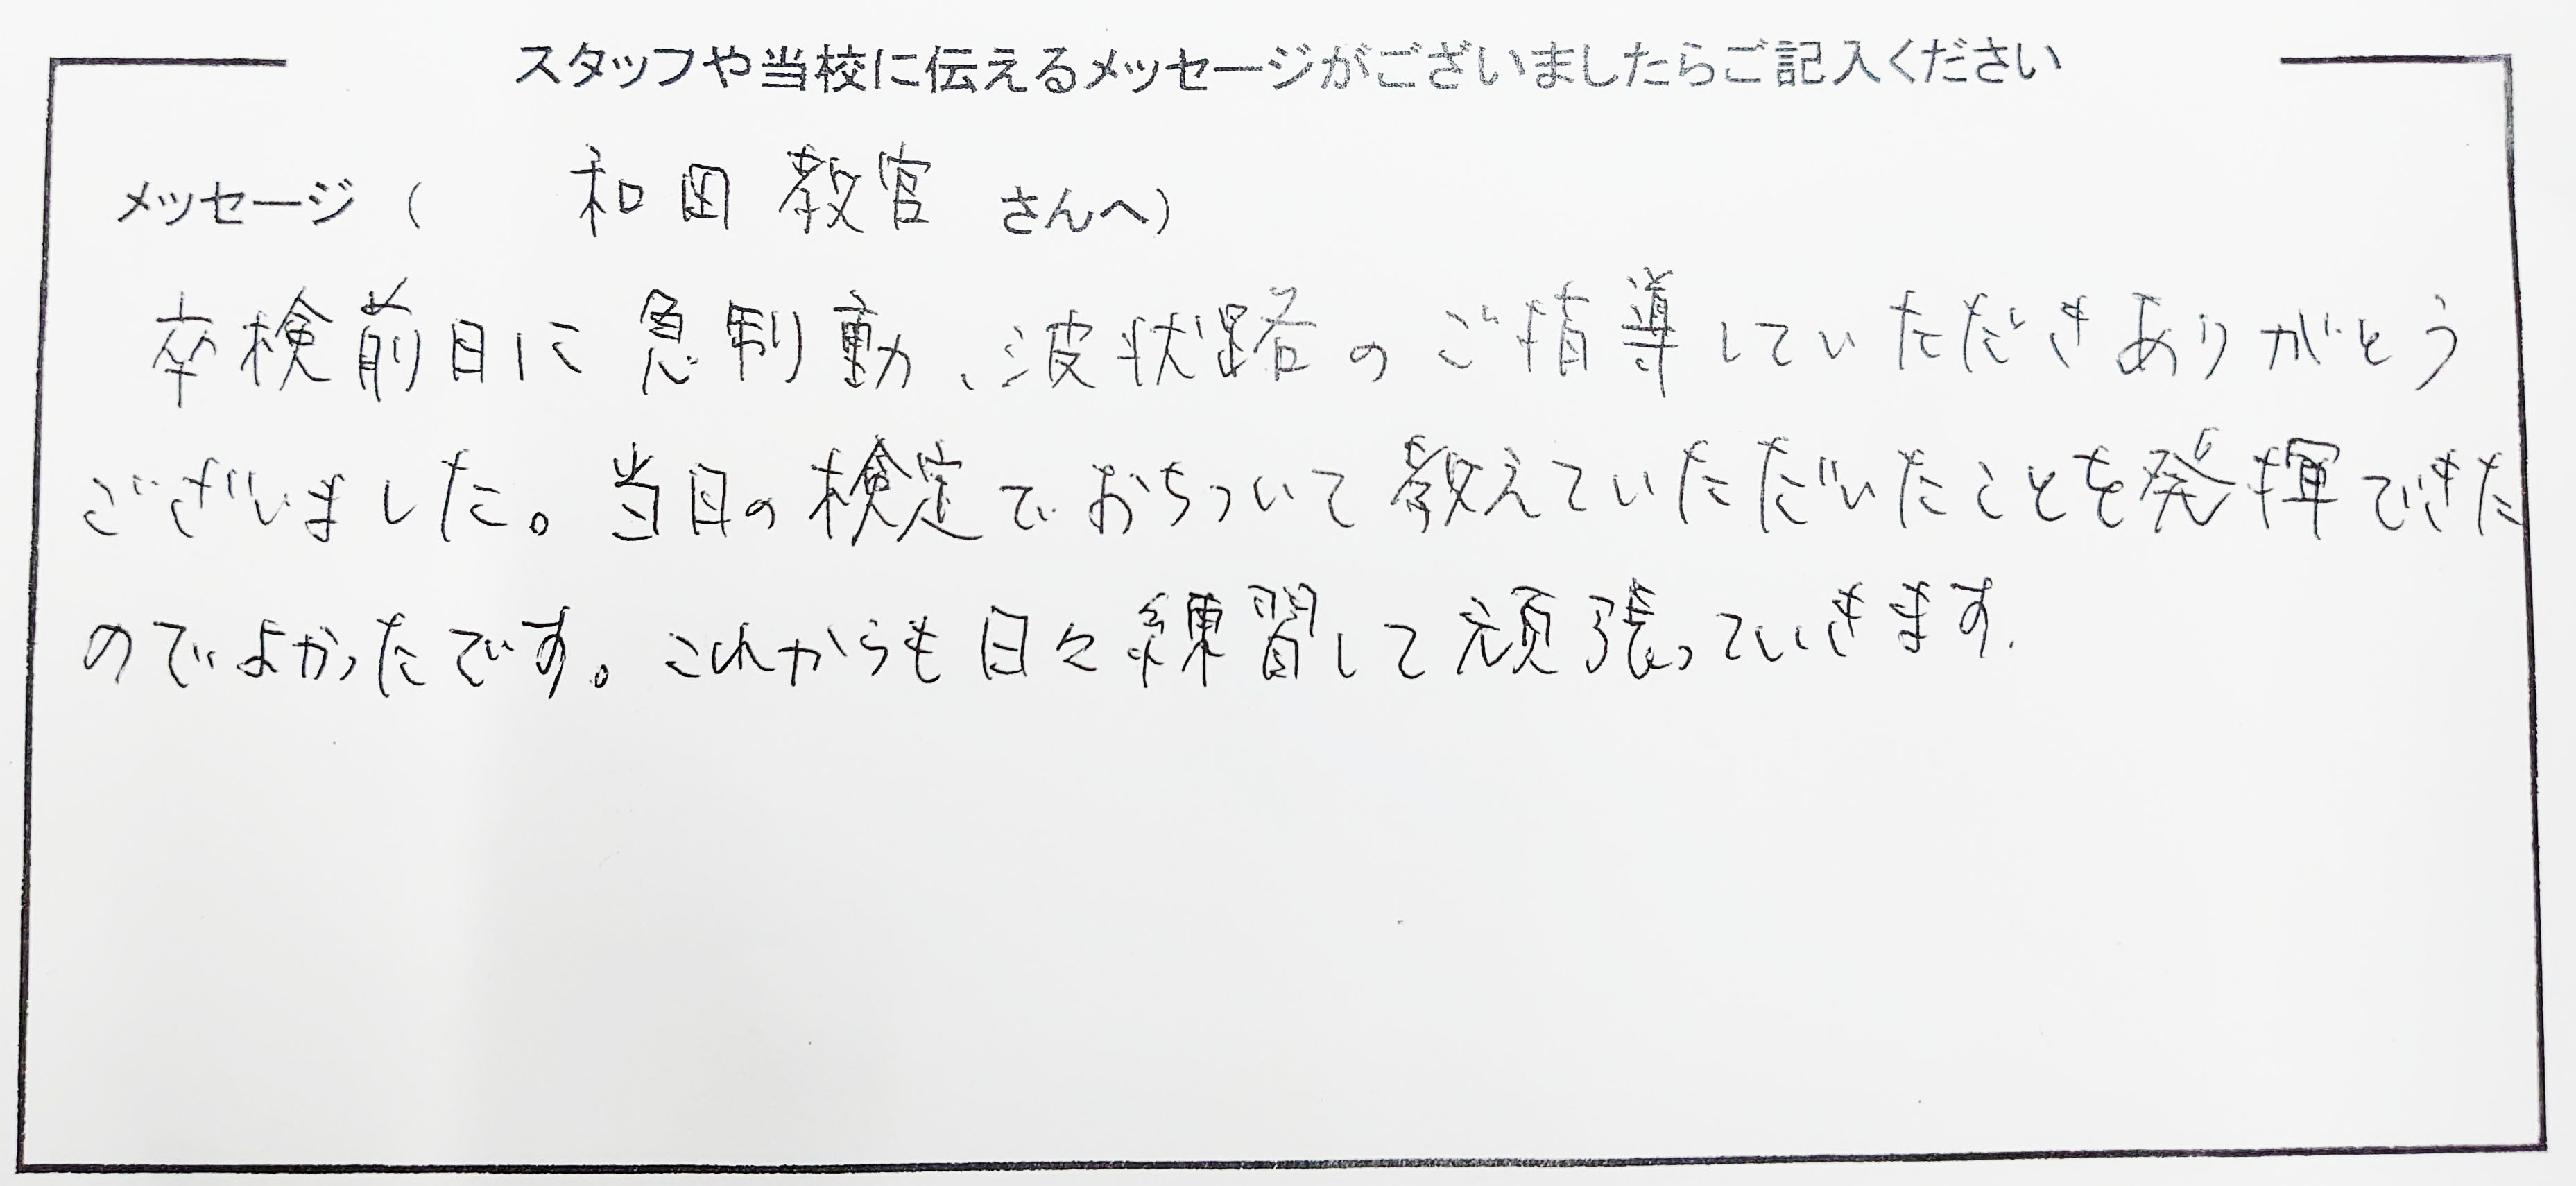 スタッフや当校に伝えるメッセージがございましたらご記入ください
メッセージ（ 和田教官 さんへ）
卒検前日に急制動、波状路のご指導していただきありがとう
ございました。当日の検定でおちついて教えていただいたことを発揮できた
のでよかったです。これからも日々練習して頑張っていきます。